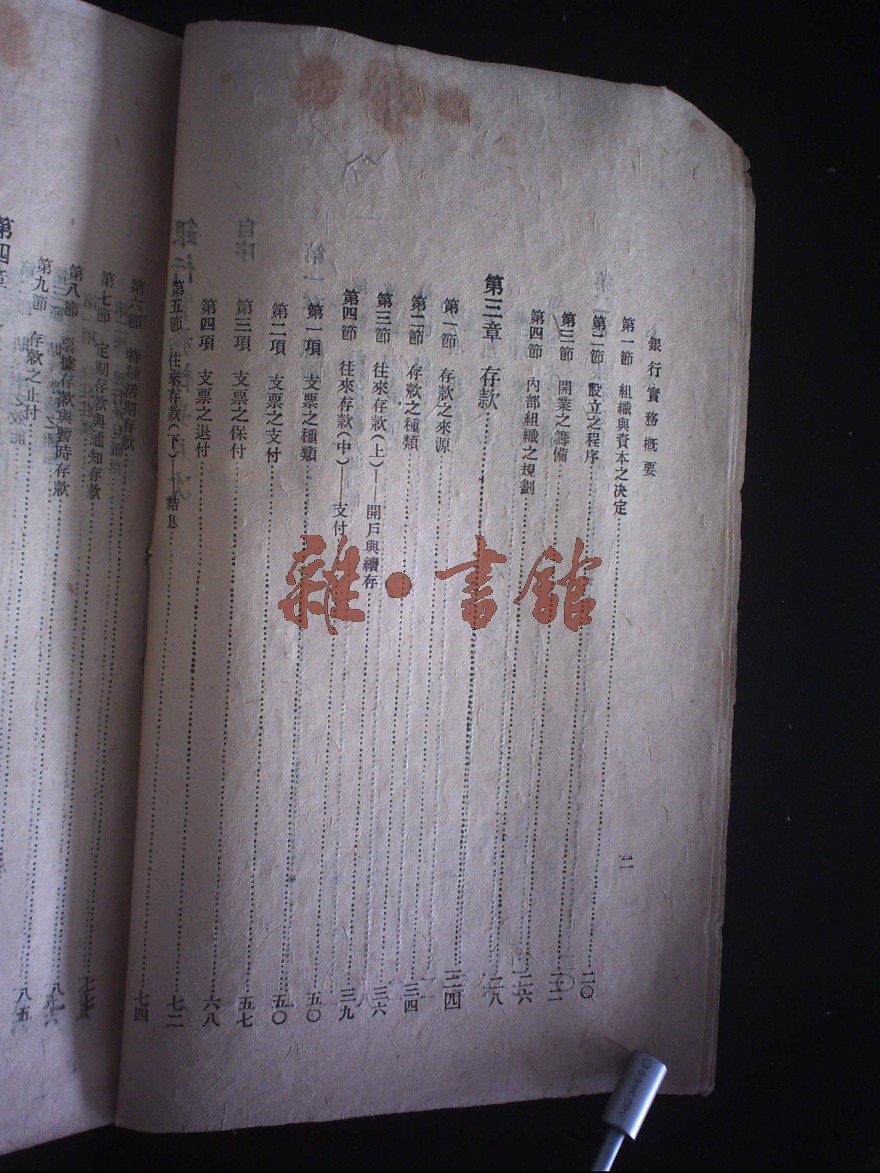 銀行實務概要
二
第一節 組織與資本之決定……二〇
第二節 設立之程序……二二
第三節 開業之籌備……二六
第四節 內部組織之規劃……二八
第三章 存款……三四
第一節 存款之來源……三四
第二節 存款之種類……三六
第三節 往來存款(上)——開戶與續存……三九
第四節 往來存款(中)——支付……五〇
第一項 支票之種類……五〇
第二項 支票之支付……五七
第三項 支票之保付……六八
第四項 支票之退付……七二
第五節 往來存款(下)——結息……七四
第六節 特種活期存款
第七節 定期存款與通知存款
第八節 票據存款與暫時存款
第九節 存款之止付……八五
第四章
雜·書館